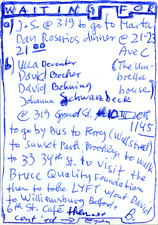 WAITING FOR
a) J.-S. @ 319 to go to Marta/
Dan Rosarios dinner @ 21-23
21:00 Ave C
b) Ulla Deventer (The Um-
David Becher brella
David Behning house)
Johanna Schwarzbeck
@ 319 Ground St.
1145
to go by Bus to Ferry (Wallstreet)
to Sunset Park Brooklyn to walk
to 33 34th St. to visit the
Bruce Quality Foundation
then to take LYFT w/out David
to Williamsburg Bedford
6th St. Café then
B.